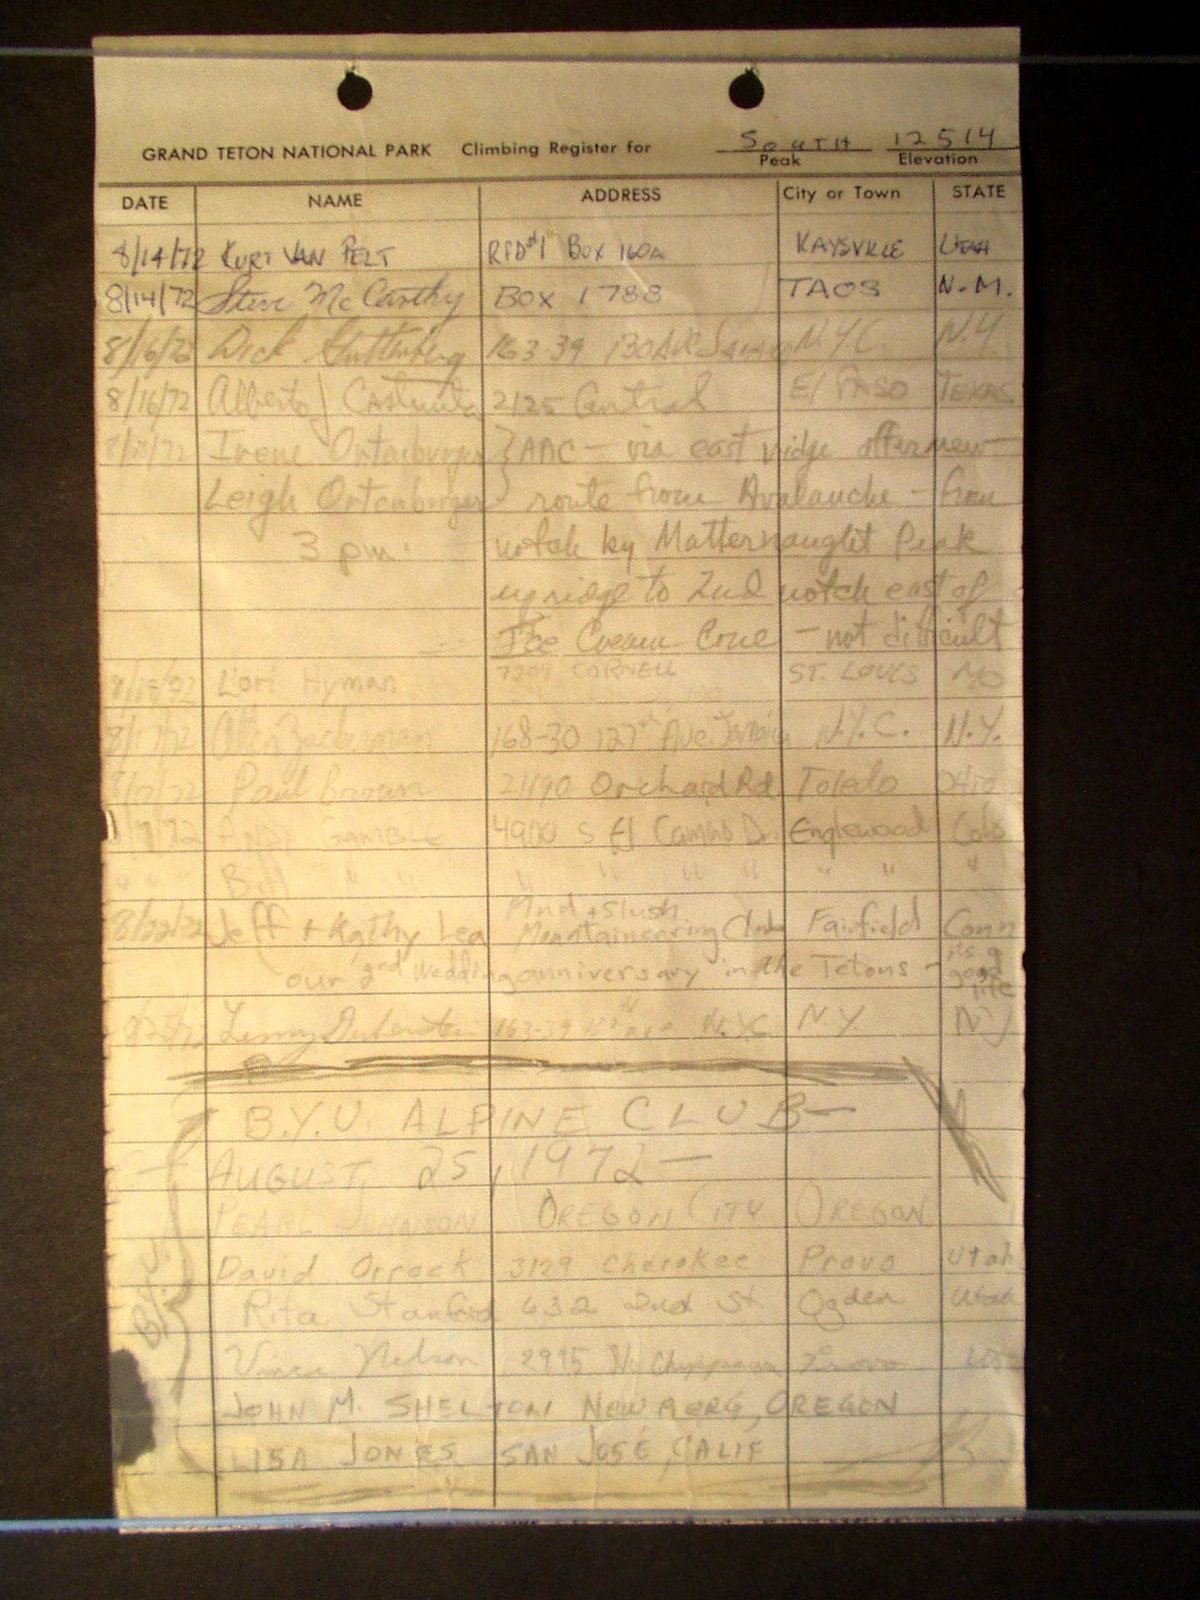 South 12514
GRAND TETON NATIONAL PARK Climbing Register for Peak Elevation
DATE NAME ADDRESS City or Town STATE
8/14/72 KURT VAN PELT RFD#1 BOX 160A KAYSVILLE UTAH
8/14/72 Steve McCarthy BOX 1788 TAOS N.M.
8/16/72 Dick 163-39 130 Ave N.Y.C. N.Y.
8/16/72 Alberto 2125 Central El PASO TEXAS
Irene Ortenburger } AAC — via east ridge after new
Leigh Ortenburger route from Avalanche - from
3 pm. notch by Matternaught Peak
up ridge to 2nd notch east of
Ice Cream Cone - not difficult
Lori Hyman 7209 CORNELL ST. LOUIS MO
168-30 127th Ave N.Y.C. N.Y.
Paul Brown Orchard Rd Toledo Ohio
ANDY GAMBLE 4900 S El Camino Dr Englewood Colo
" " " Bill " " " " " " " " "
Mud + Slush
8/22/72 Jeff + Kathy Lea Mountaineering Club Fairfield Conn
our 2nd wedding anniversary in the Tetons - it's a good life
163-39 N.Y.C. N.Y. NY
B.Y.U. ALPINE CLUB—
AUGUST, 25, 1972—
PEARL JOHNSON OREGON CITY OREGON
David Orrock 3129 Cherokee Provo Utah
B.Y.U.
Rita Stanford 632 2nd St. Ogden Utah
Vince Nelson 2995 N. Provo
JOHN M. SHELTON NEWBERG, OREGON
LISA JONES SAN JOSE, CALIF